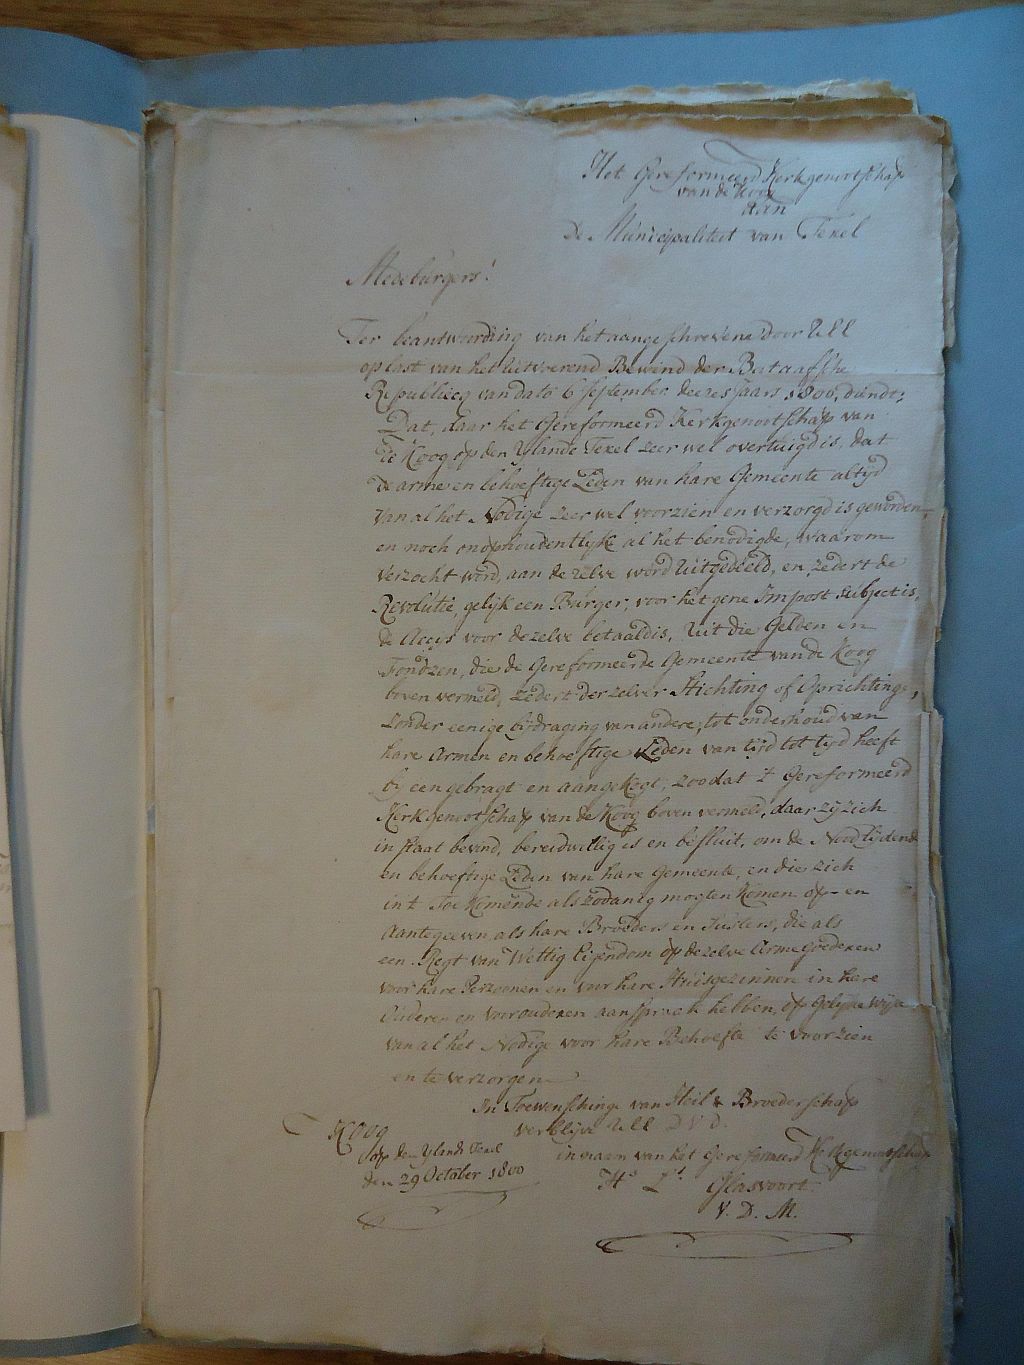 Het Gereformeerd Kerkgenootschap
van de Koog
aan
De Municipaliteit van Texel
Medeburgers!
Ter beantwoording van het aangeschrevene door Ull
op last van het Uitvoerend Bewind der Bataafsche
Republiecq van dato 6 September deezes Jaars 1800, diendt;
Dat, daar het Gereformeerd Kerkgenootschap van
de Koog op den Ylande Texel zeer wel overtuigd is, dat
de arme en behoeftige Leden van hare Gemeente altyd
van al het Nodige zeer wel voorzien en verzorgd is geworden
en noch onophoudentlyk al het benodigde, waarom
verzocht word, aan de zelve word uitgedeeld, en zedert de
Revolutie, gelijk een Burger, voor het gene Impost subject is,
de Accys voor dezelve betaald is, Uit die Gelden en
Fondzen, die de Gereformeerde Gemeente van de Koog
boven vermeld, zedert derzelver Stichting of Oprichting,
zonder eenige bydraging van andere, tot onderhoud van
hare Armen en behoeftige Leden van tyd tot tyd heeft
by een gebragt en aangekogt, zoo dat 't Gereformeerd
Kerkgenootschap van de Koog boven vermeld, daar zy zich
in staat bevind, bereidwillig is en besluit, om de Noodlydende
en behoeftige Leden van hare Gemeente, en die zich
in 't Toekomende als zodanig mogten komen op- en
aantegeeven, als hare Broeders en Zusters, die als
een Regt van Wettig Eijendom op dezelve Arme goederen
voor hare Perzoonen en voor hare Huisgezinnen in hare
Ouderen en voorouderen aanspraak hebben, op Gelyke Wijze
van al het Nodige voor hare Behoefte te voorzien
en te verzorgen
In Toewensching van Heil & Broederschap
verblijve Ull D.V.D.
in naam van het Gereformeerd Kerkgenootschap
Koog
op den Ylande Texel
den 29 October 1800
Hs Lt Glasvoort
V. D. M.